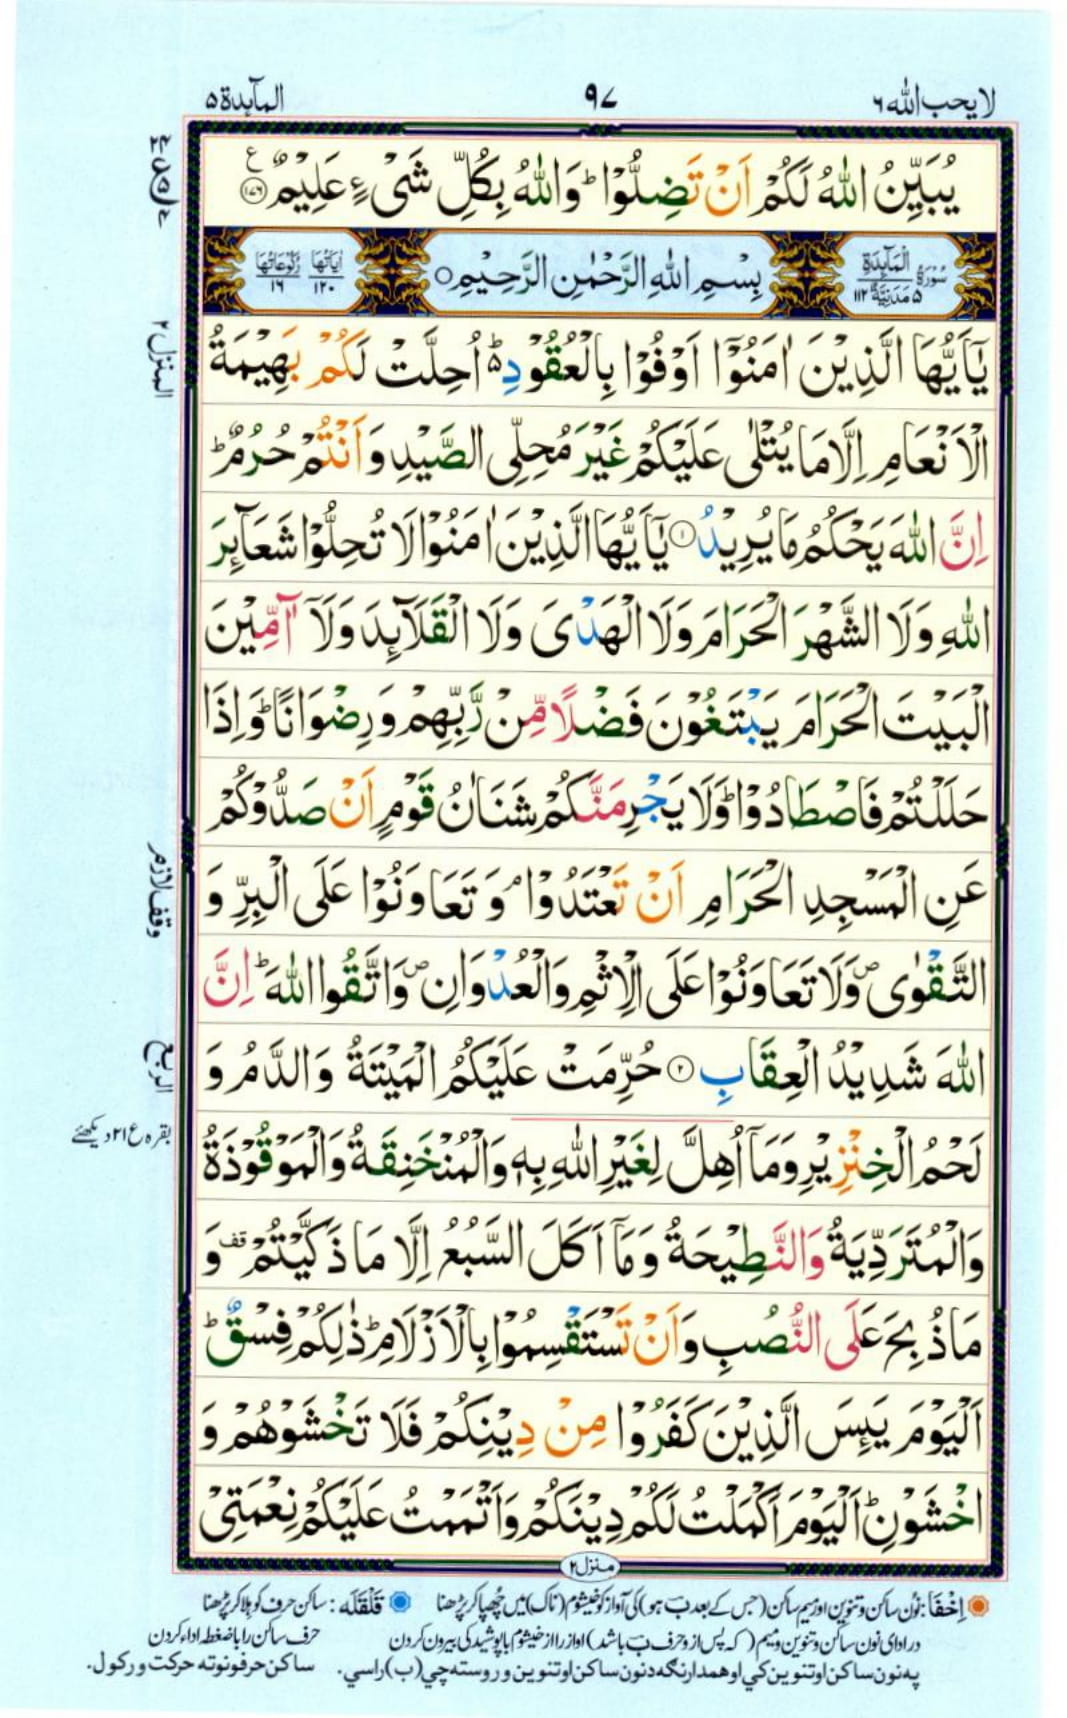 المآئدة ۵
۹۷
لا یحب اللہ ۶
یُبَیِّنُ اللّٰهُ لَكُمْ اَنْ تَضِلُّوْا ؕ وَاللّٰهُ بِكُلِّ شَیْءٍ عَلِیْمٌ ۝۱۷۶ ع
سُوْرَةُ الْمَآئِدَةِ مَدَنِیَّةٌ ۵ ۱۱۲
بِسْمِ اللّٰهِ الرَّحْمٰنِ الرَّحِیْمِ ۝
اٰیَاتُهَا ۱۲۰ رُكُوْعَاتُهَا ۱۶
یٰۤاَیُّهَا الَّذِیْنَ اٰمَنُوْۤا اَوْفُوْا بِالْعُقُوْدِ ؕ۬ اُحِلَّتْ لَكُمْ بَهِیْمَةُ
الْاَنْعَامِ اِلَّا مَا یُتْلٰی عَلَیْكُمْ غَیْرَ مُحِلِّی الصَّیْدِ وَ اَنْتُمْ حُرُمٌ ؕ
اِنَّ اللّٰهَ یَحْكُمُ مَا یُرِیْدُ ۝۱ یٰۤاَیُّهَا الَّذِیْنَ اٰمَنُوْا لَا تُحِلُّوْا شَعَآئِرَ
اللّٰهِ وَلَا الشَّهْرَ الْحَرَامَ وَلَا الْهَدْیَ وَلَا الْقَلَآئِدَ وَلَاۤ آٰمِّیْنَ
الْبَیْتَ الْحَرَامَ یَبْتَغُوْنَ فَضْلًا مِّنْ رَّبِّهِمْ وَرِضْوَانًا ؕ وَاِذَا
حَلَلْتُمْ فَاصْطَادُوْا ؕ وَلَا یَجْرِمَنَّكُمْ شَنَاٰنُ قَوْمٍ اَنْ صَدُّوْكُمْ
عَنِ الْمَسْجِدِ الْحَرَامِ اَنْ تَعْتَدُوْا ۘ وَ تَعَاوَنُوْا عَلَی الْبِرِّ وَ
التَّقْوٰی ۪ وَلَا تَعَاوَنُوْا عَلَی الْاِثْمِ وَالْعُدْوَانِ ۪ وَاتَّقُوا اللّٰهَ ؕ اِنَّ
اللّٰهَ شَدِیْدُ الْعِقَابِ ۝۲ حُرِّمَتْ عَلَیْكُمُ الْمَیْتَةُ وَالدَّمُ وَ
لَحْمُ الْخِنْزِیْرِ وَمَاۤ اُهِلَّ لِغَیْرِ اللّٰهِ بِهٖ وَالْمُنْخَنِقَةُ وَالْمَوْقُوْذَةُ
وَالْمُتَرَدِّیَةُ وَالنَّطِیْحَةُ وَمَاۤ اَكَلَ السَّبُعُ اِلَّا مَا ذَكَّیْتُمْ قف وَ
مَا ذُبِحَ عَلَی النُّصُبِ وَ اَنْ تَسْتَقْسِمُوْا بِالْاَزْلَامِ ؕ ذٰلِكُمْ فِسْقٌ ؕ
اَلْیَوْمَ یَئِسَ الَّذِیْنَ كَفَرُوْا مِنْ دِیْنِكُمْ فَلَا تَخْشَوْهُمْ وَ
اخْشَوْنِ ؕ اَلْیَوْمَ اَكْمَلْتُ لَكُمْ دِیْنَكُمْ وَاَتْمَمْتُ عَلَیْكُمْ نِعْمَتِیْ
المنزل ۲
وقف لازم
الربع
بقرہ ع ۲۱ دیکھئے
منزل ۲
اِخْفَا: نُون ساکن و تنوین اور میم ساکن (جس کے بعد ب ہو) کی آواز کو خیشوم (ناک) میں چُھپا کر پڑھنا
قَلْقَلَہ: ساکن حرف کو ہلا کر پڑھنا
در ادای نون ساکن و تنوین و میم ( کہ پس از و حرف ب باشد) آواز را از خیشوم با پوشیدگی بیرون کردن
حرف ساکن را با ضغطہ ادا کردن
په نون ساکن او تنوین کي او همدارنګه د نون ساکن او تنوین و روسته چي (ب) راسي.
ساکن حرفونو ته حرکت ورکول.